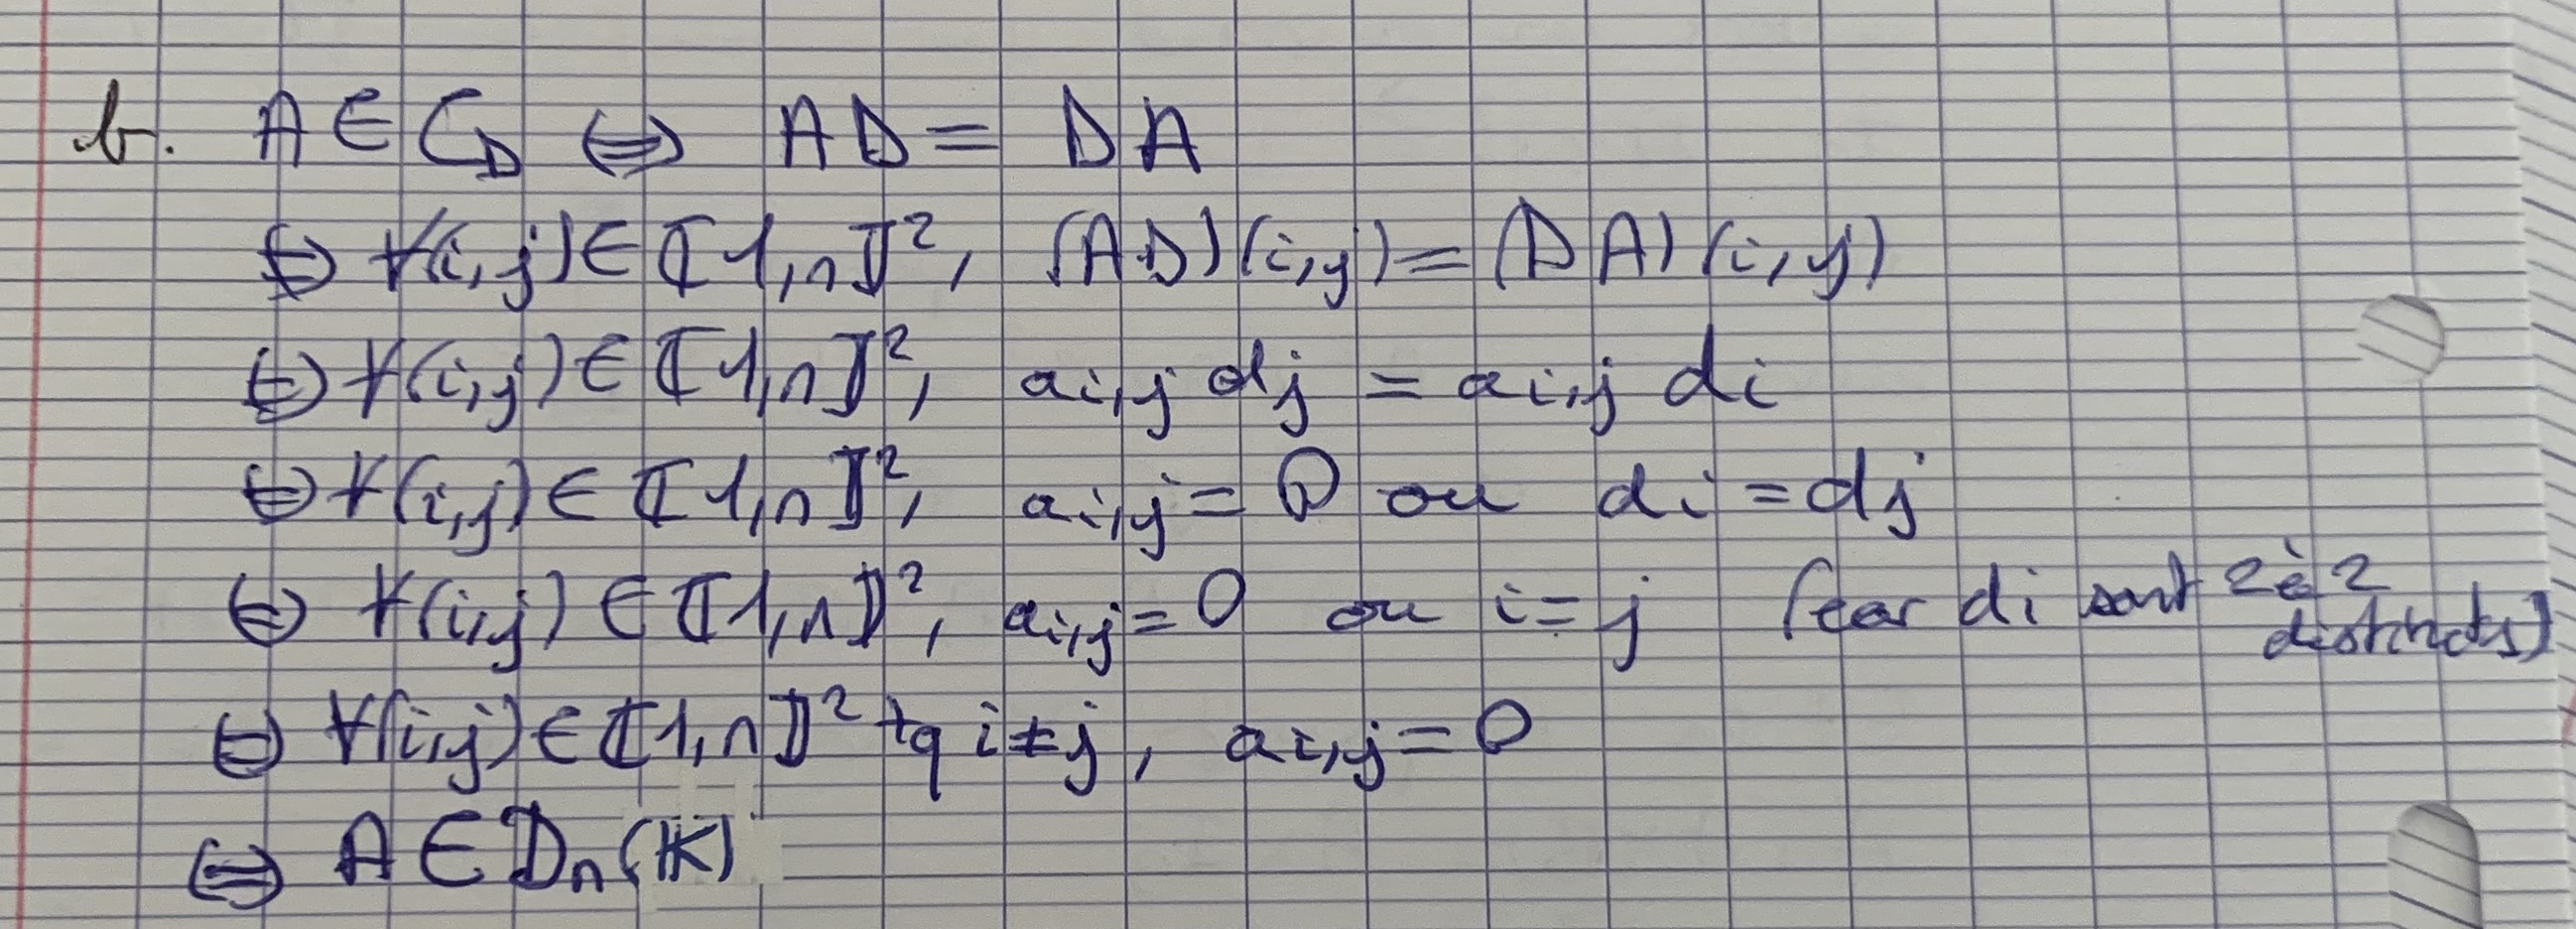 b. A ∈ C_D ⇔ AD = DA
⇔ ∀(i,j) ∈ ⟦1,n⟧², (AD)(i,j) = (DA)(i,j)
⇔ ∀(i,j) ∈ ⟦1,n⟧², ai,j dj = ai,j di
⇔ ∀(i,j) ∈ ⟦1,n⟧², ai,j = 0 ou di = dj
⇔ ∀(i,j) ∈ ⟦1,n⟧², ai,j = 0 ou i = j (car di sont 2 à 2
distincts)
⇔ ∀(i,j) ∈ ⟦1,n⟧² tq i ≠ j, ai,j = 0
⇔ A ∈ Dn(𝕂)